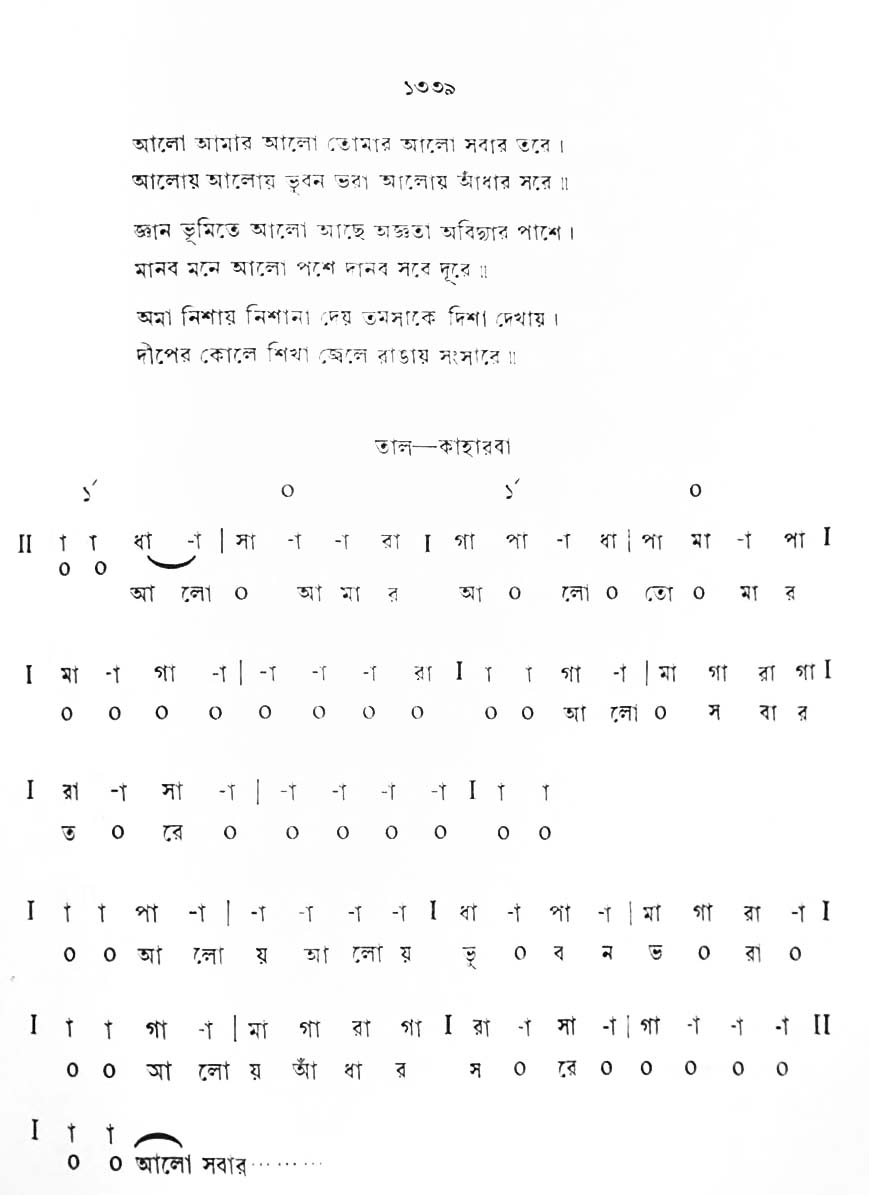 ১৩৩৯
আলো আমার আলো তোমার আলো সবার তরে ।
আলোয় আলোয় ভূবন ভরা আলোয় আঁধার সরে ॥
জ্ঞান ভূমিতে আলো আছে অজ্ঞতা অবিদ্যার পাশে ।
মানব মনে আলো পশে দানব সবে দূরে ॥
অমা নিশায় নিশানা দেয় তমসাকে দিশা দেখায় ।
দীপের কোলে শিখা জ্বেলে রাঙায় সংসারে ॥
তাল—কাহারবা
১´ ০ ১´ ০
II া া ধা -া | সা -া -া রা I গা পা -া ধা | পা মা -া পা I
০ ০
আ লো ০ আ মা র আ ০ লো ০ তো ০ মা র
I মা -া গা -া | -া -া -া রা I া া গা -া | মা গা রা গা I
০ ০ ০ ০ ০ ০ ০ ০ ০ ০ আ লো ০ স বা র
I রা -া সা -া | -া -া -া -া I া া
ত ০ রে ০ ০ ০ ০ ০ ০ ০
I া া পা -া | -া -া -া -া I ধা -া পা -া | মা গা রা -া I
০ ০ আ লো য় আ লো য় ভূ ০ ব ন ভ ০ রা ০
I া া গা -া | মা গা রা গা I রা -া সা -া | গা -া -া -া II
০ ০ আ লো য় আঁ ধা র স ০ রে ০ ০ ০ ০ ০
I া া
০ ০ আলো সবার ………